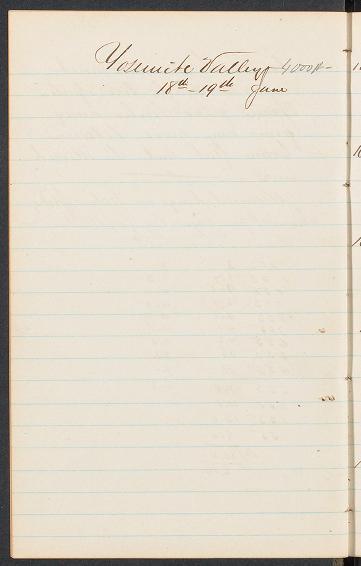 Yosemite Valley 4000 ft-
18th - 19th June